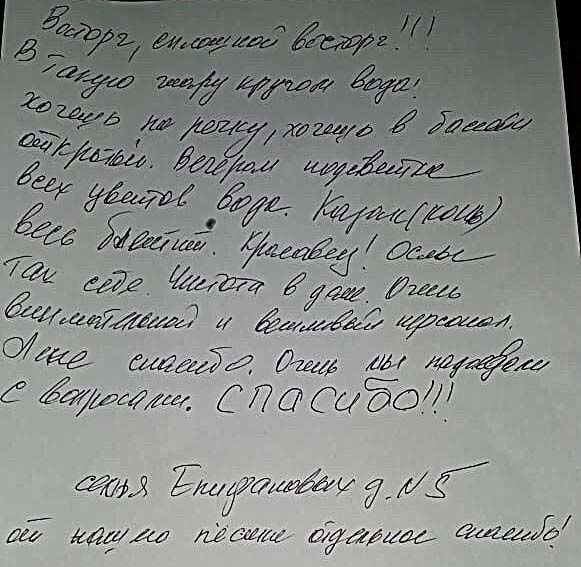 Восторг, сплошной восторг!!!
В такую жару кругом вода!
хочешь на речку, хочешь в бассейн
открытый. Вечером подсветка
всех цветов вода. Казак (конь)
весь блестит. Красавец! Ослы
так себе. Чистота в доме. Очень
внимательной и вежливый персонал.
Лене спасибо. Очень мы надоедали
с вопросами. СПАСИБО!!!
семья Епифановых д. N 5
от нашего песика отдельное спасибо!